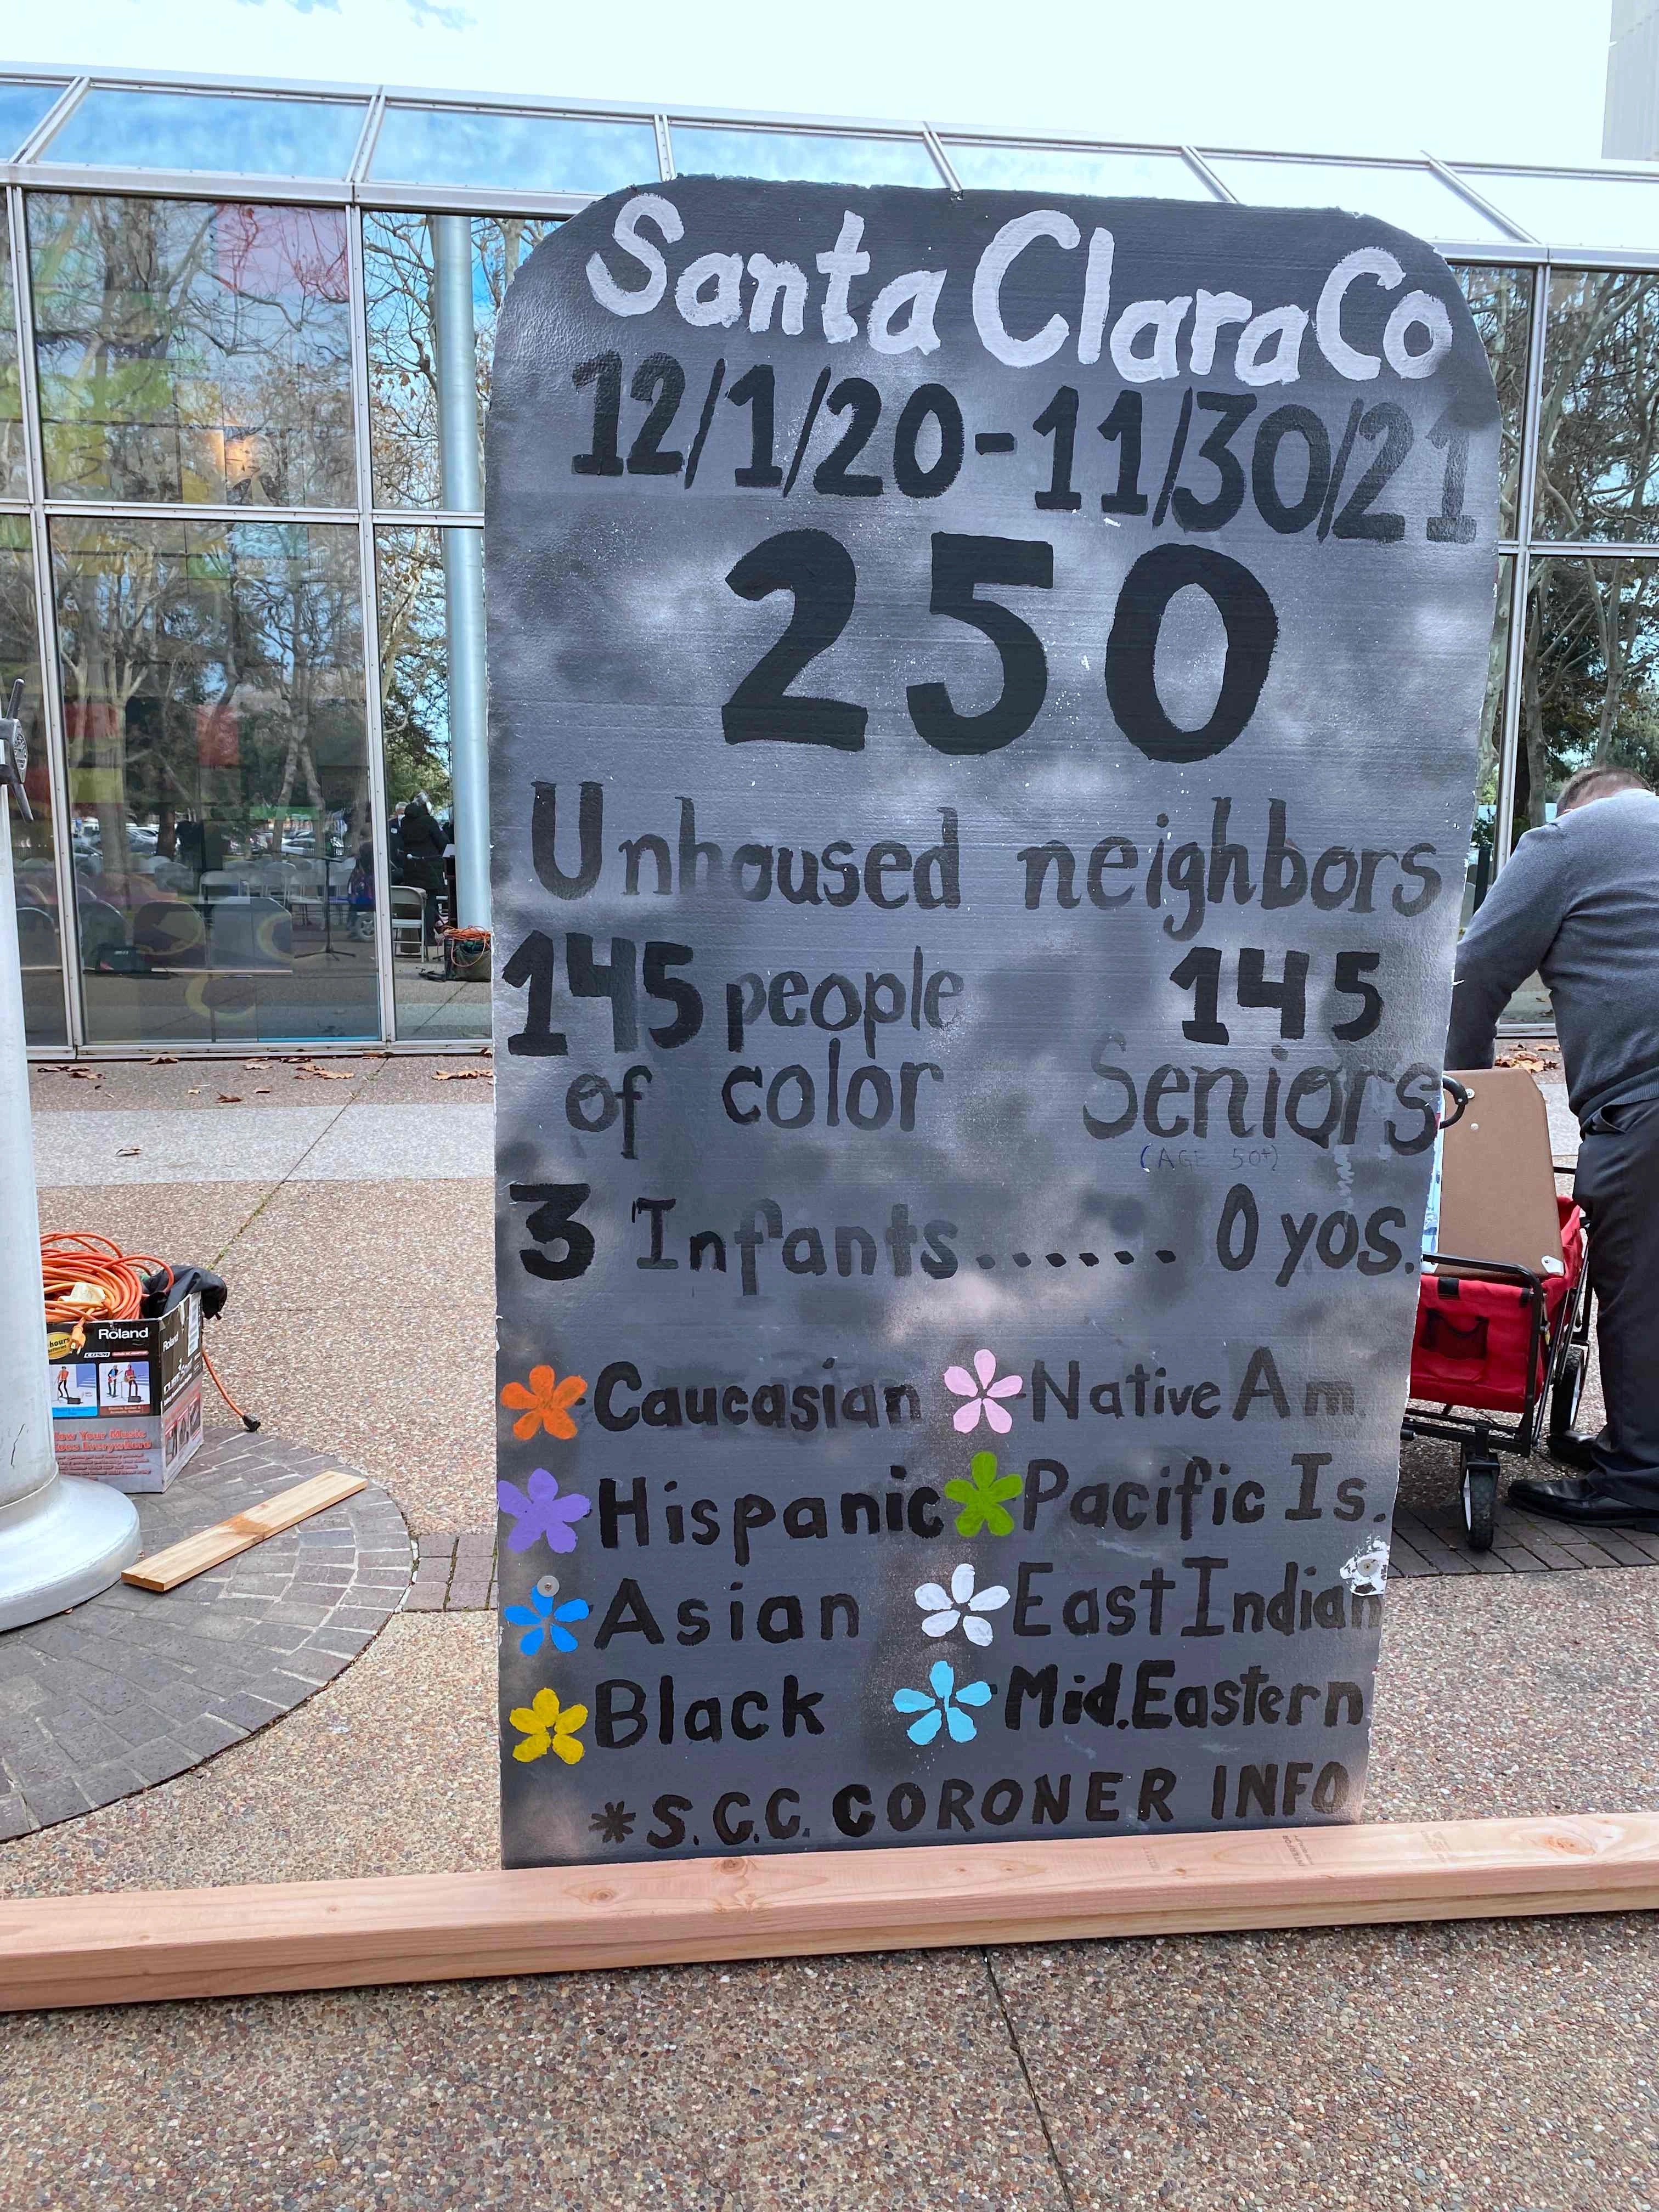 Santa Clara Co
12/1/20-11/30/21
250
Unhoused neighbors
145 people
of color
145
Seniors
(AGE 50+)
3 Infants....... 0 yos.
Caucasian
Native Am.
Hispanic
Pacific Is.
Asian
East Indian
Black
Mid. Eastern
*S.C.C. CORONER INFO
Roland